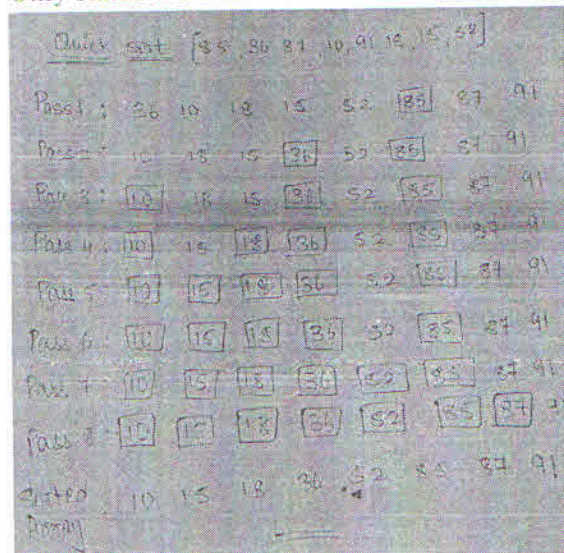 Quick sort [85, 36 87, 10, 91, 18, 15, 52]
Pass 1 : 36 10 18 15 52 85 87 91
Pass 2 : 10 18 15 36 52 85 87 91
Pass 3 : 10 18 15 36 52 85 87 91
Pass 4 : 10 15 18 36 52 85 87 91
Pass 5 : 10 15 18 36 52 85 87 91
Pass 6 : 10 15 18 36 52 85 87 91
Pass 7 : 10 15 18 36 52 85 87 91
Pass 8 : 10 15 18 36 52 85 87
sorted : 10 15 18 36 52 85 87 91
Array